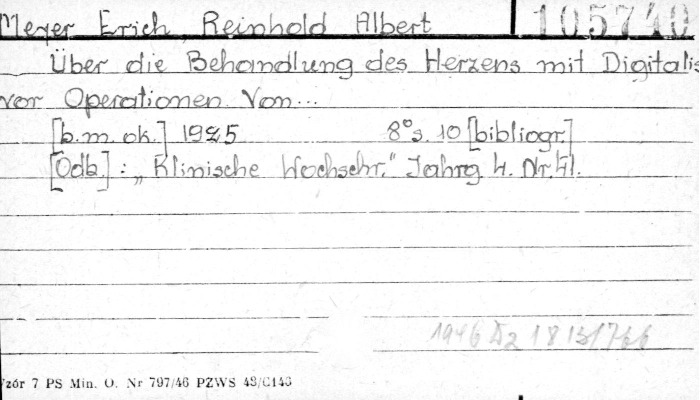 Meyer Erich, Reinhold Albert 105740
Über die Behandlung des Herzens mit Digitalis
vor Operationen. Von...
[b.m. ok.] 1925 8° s. 10 [bibliogr.]
[Odb.]: „Klinische Wochschr.” Jahrg 4. Nr. 41.
1946 1813/766
Wzór 7 PS Min. O. Nr 797/46 PZWS 43/C143